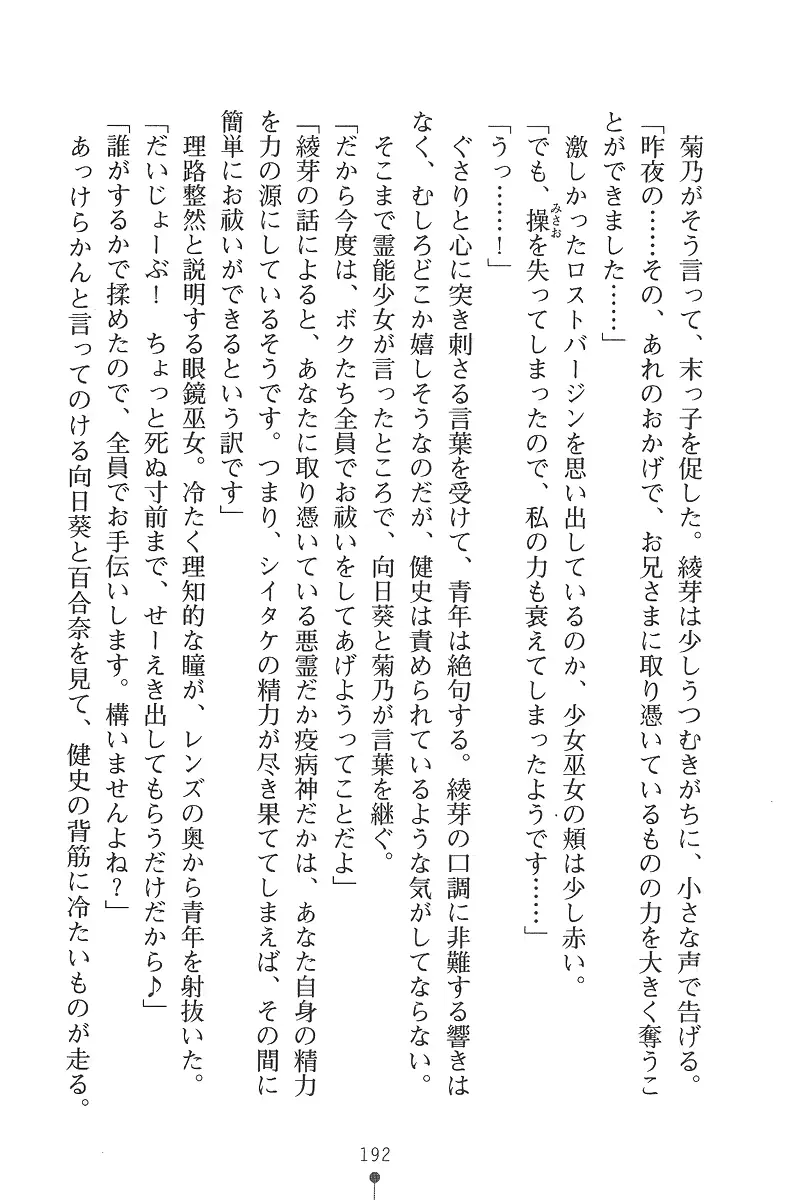 菊乃がそう言って、末っ子を促した。綾芽は少しうつむきがちに、小さな声で告げる。
「昨夜の……その、あれのおかげで、お兄さまに取り憑いているものの力を大きく奪うこ
とができました……」
激しかったロストバージンを思い出しているのか、少女巫女の頬は少し赤い。
「でも、操みさおを失ってしまったので、私の力も衰えてしまったようです……」
「うっ……！」
ぐさりと心に突き刺さる言葉を受けて、青年は絶句する。綾芽の口調に非難する響きは
なく、むしろどこか嬉しそうなのだが、健史は責められているような気がしてならない。
そこまで霊能少女が言ったところで、向日葵と菊乃が言葉を継ぐ。
「だから今度は、ボクたち全員でお祓いをしてあげようってことだよ」
「綾芽の話によると、あなたに取り憑いている悪霊だか疫病神だかは、あなた自身の精力
を力の源にしているそうです。つまり、シイタケの精力が尽き果ててしまえば、その間に
簡単にお祓いができるという訳です」
理路整然と説明する眼鏡巫女。冷たく理知的な瞳が、レンズの奥から青年を射抜いた。
「だいじょーぶ！　ちょっと死ぬ寸前まで、せーえき出してもらうだけだから♪」
「誰がするかで揉めたので、全員でお手伝いします。構いませんよね？」
あっけらかんと言ってのける向日葵と百合奈を見て、健史の背筋に冷たいものが走る。
192